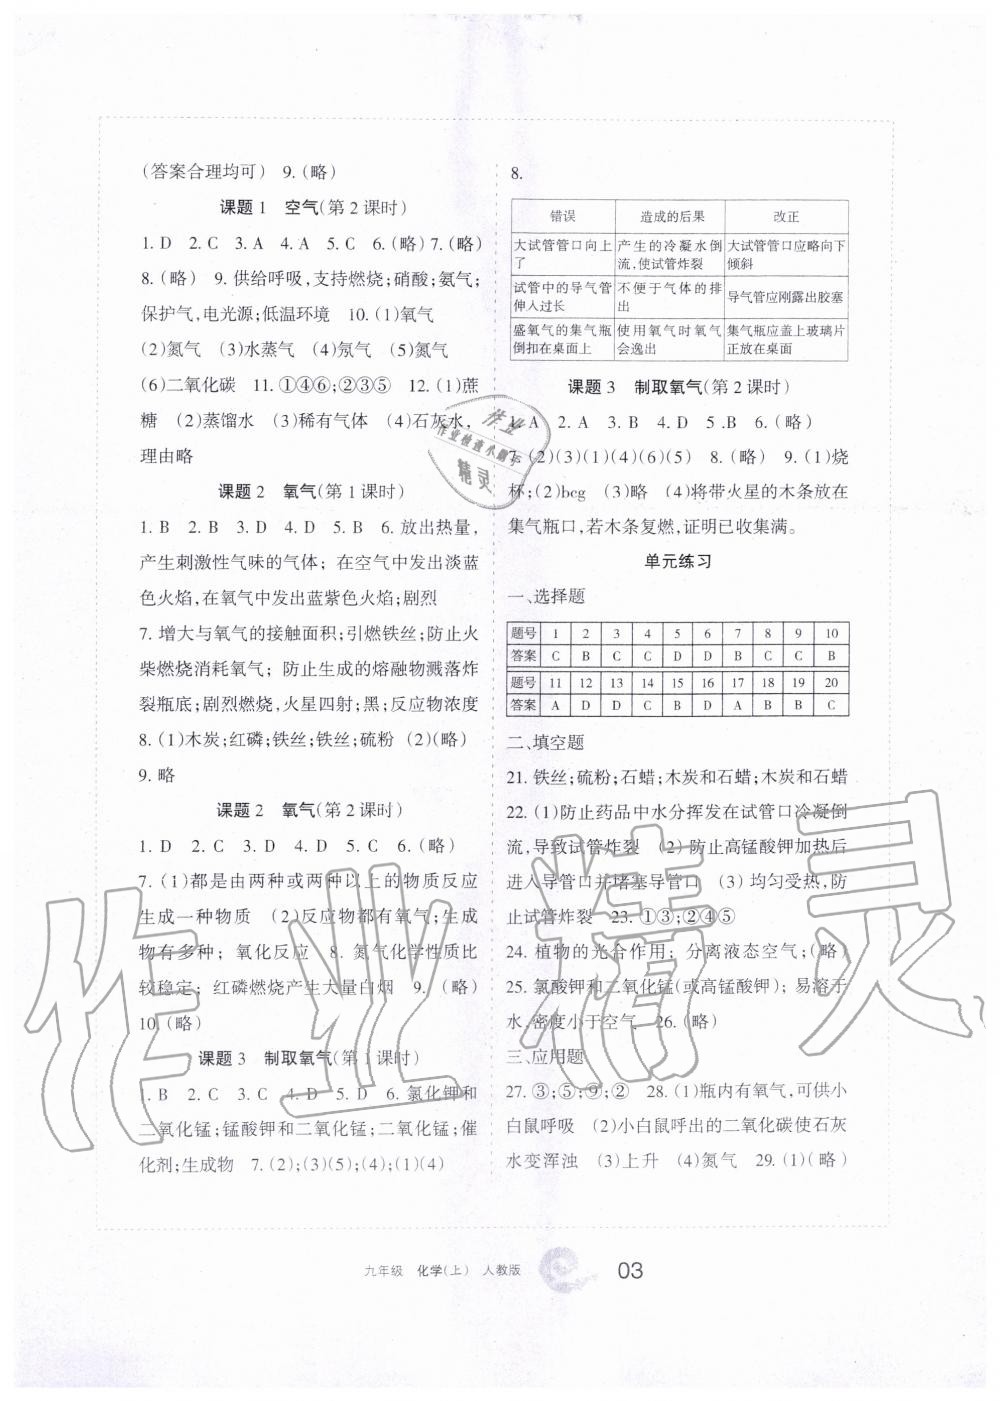 (答案合理均可)　9.(略)
课题1　空气(第2课时)
1. D　2. C　3. A　4. A　5. C　6.(略)7.(略)
8.(略)　9. 供给呼吸,支持燃烧;硝酸;氨气;
保护气,电光源;低温环境　10.(1)氧气
(2)氮气　(3)水蒸气　(4)氖气　(5)氮气
(6)二氧化碳　11. ①④⑥;②③⑤　12.(1)蔗
糖　(2)蒸馏水　(3)稀有气体　(4)石灰水,
理由略
课题2　氧气(第1课时)
1. B　2. B　3. D　4. D　5. B　6. 放出热量,
产生刺激性气味的气体；在空气中发出淡蓝
色火焰,在氧气中发出蓝紫色火焰;剧烈
7. 增大与氧气的接触面积;引燃铁丝;防止火
柴燃烧消耗氧气；防止生成的熔融物溅落炸
裂瓶底;剧烈燃烧,火星四射;黑;反应物浓度
8.(1)木炭;红磷;铁丝;铁丝;硫粉　(2)(略)
9. 略
课题2　氧气(第2课时)
1. D　2. C　3. D　4. D　5. C　6.(略)
7.(1)都是由两种或两种以上的物质反应
生成一种物质　(2)反应物都有氧气;生成
物有多种；氧化反应　8. 氮气化学性质比
较稳定；红磷燃烧产生大量白烟　9.(略)
10.(略)
课题3　制取氧气(第1课时)
1. B　2. C　3. C　4. D　5. D　6. 氯化钾和
二氧化锰;锰酸钾和二氧化锰;二氧化锰;催
化剂;生成物　7.(2);(3)(5);(4);(1)(4)
8.
错误　造成的后果　改正
大试管管口向上了　产生的冷凝水倒流,使试管炸裂　大试管管口应略向下倾斜
试管中的导气管伸入过长　不便于气体的排出　导气管应刚露出胶塞
盛氧气的集气瓶倒扣在桌面上　使用氧气时氧气会逸出　集气瓶应盖上玻璃片正放在桌面
课题3　制取氧气(第2课时)
1. A　2. A　3. B　4. D　5 .B　6.(略)
7.(2)(3)(1)(4)(6)(5)　8.(略)　9.(1)烧
杯;(2)bcg　(3)略　(4)将带火星的木条放在
集气瓶口,若木条复燃,证明已收集满。
单元练习
一、选择题
题号 1 2 3 4 5 6 7 8 9 10
答案 C B C C D D B C C B
题号 11 12 13 14 15 16 17 18 19 20
答案 A D D C B D A B B C
二、填空题
21. 铁丝;硫粉;石蜡;木炭和石蜡;木炭和石蜡
22.(1)防止药品中水分挥发在试管口冷凝倒
流,导致试管炸裂　(2)防止高锰酸钾加热后
进入导管口并堵塞导管口　(3)均匀受热,防
止试管炸裂　23. ①③;②④⑤
24. 植物的光合作用；分离液态空气;(略)
25. 氯酸钾和二氧化锰(或高锰酸钾)；易溶于
水,密度小于空气　26.(略)
三、应用题
27. ③;⑤;⑨;②　28.(1)瓶内有氧气,可供小
白鼠呼吸　(2)小白鼠呼出的二氧化碳使石灰
水变浑浊　(3)上升　(4)氮气　29.(1)(略)
九年级　化学(上)　人教版　03
作业精灵
作业
作业检查小助手
精灵